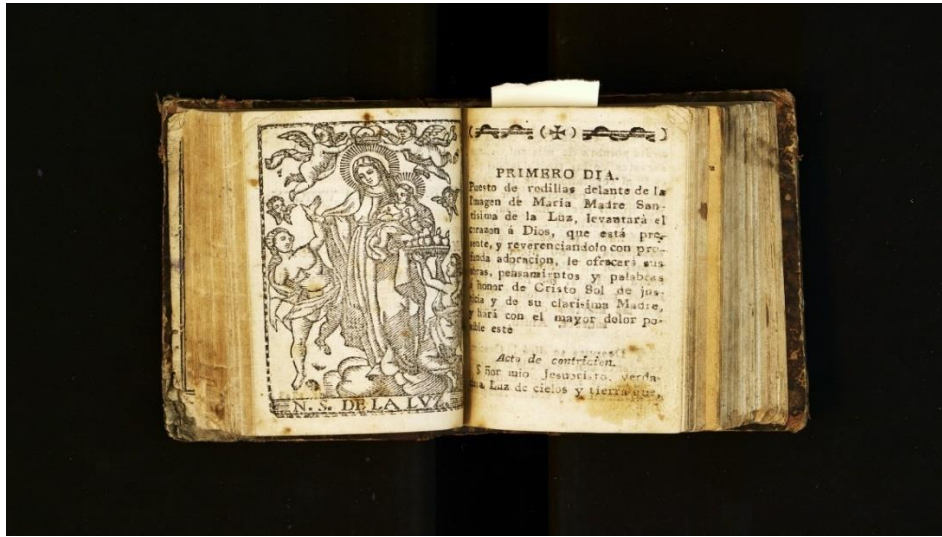 N. S. DE LA LVZ.
PRIMERO DIA.
Puesto de rodillas delante de la
Imagen de Maria Madre San-
tisima de la Luz, levantará el
corazon á Dios, que está pre-
sente, y reverenciandolo con pro-
funda adoracion, le ofrecerá sus
obras, pensamientos y palabras
á honor de Cristo Sol de jus-
ticia y de su clarisima Madre,
y hará con el mayor dolor po-
sible este
Acto de contricion.
Señor mio Jesucristo, verda-
dera Luz de cielos y tierra que,